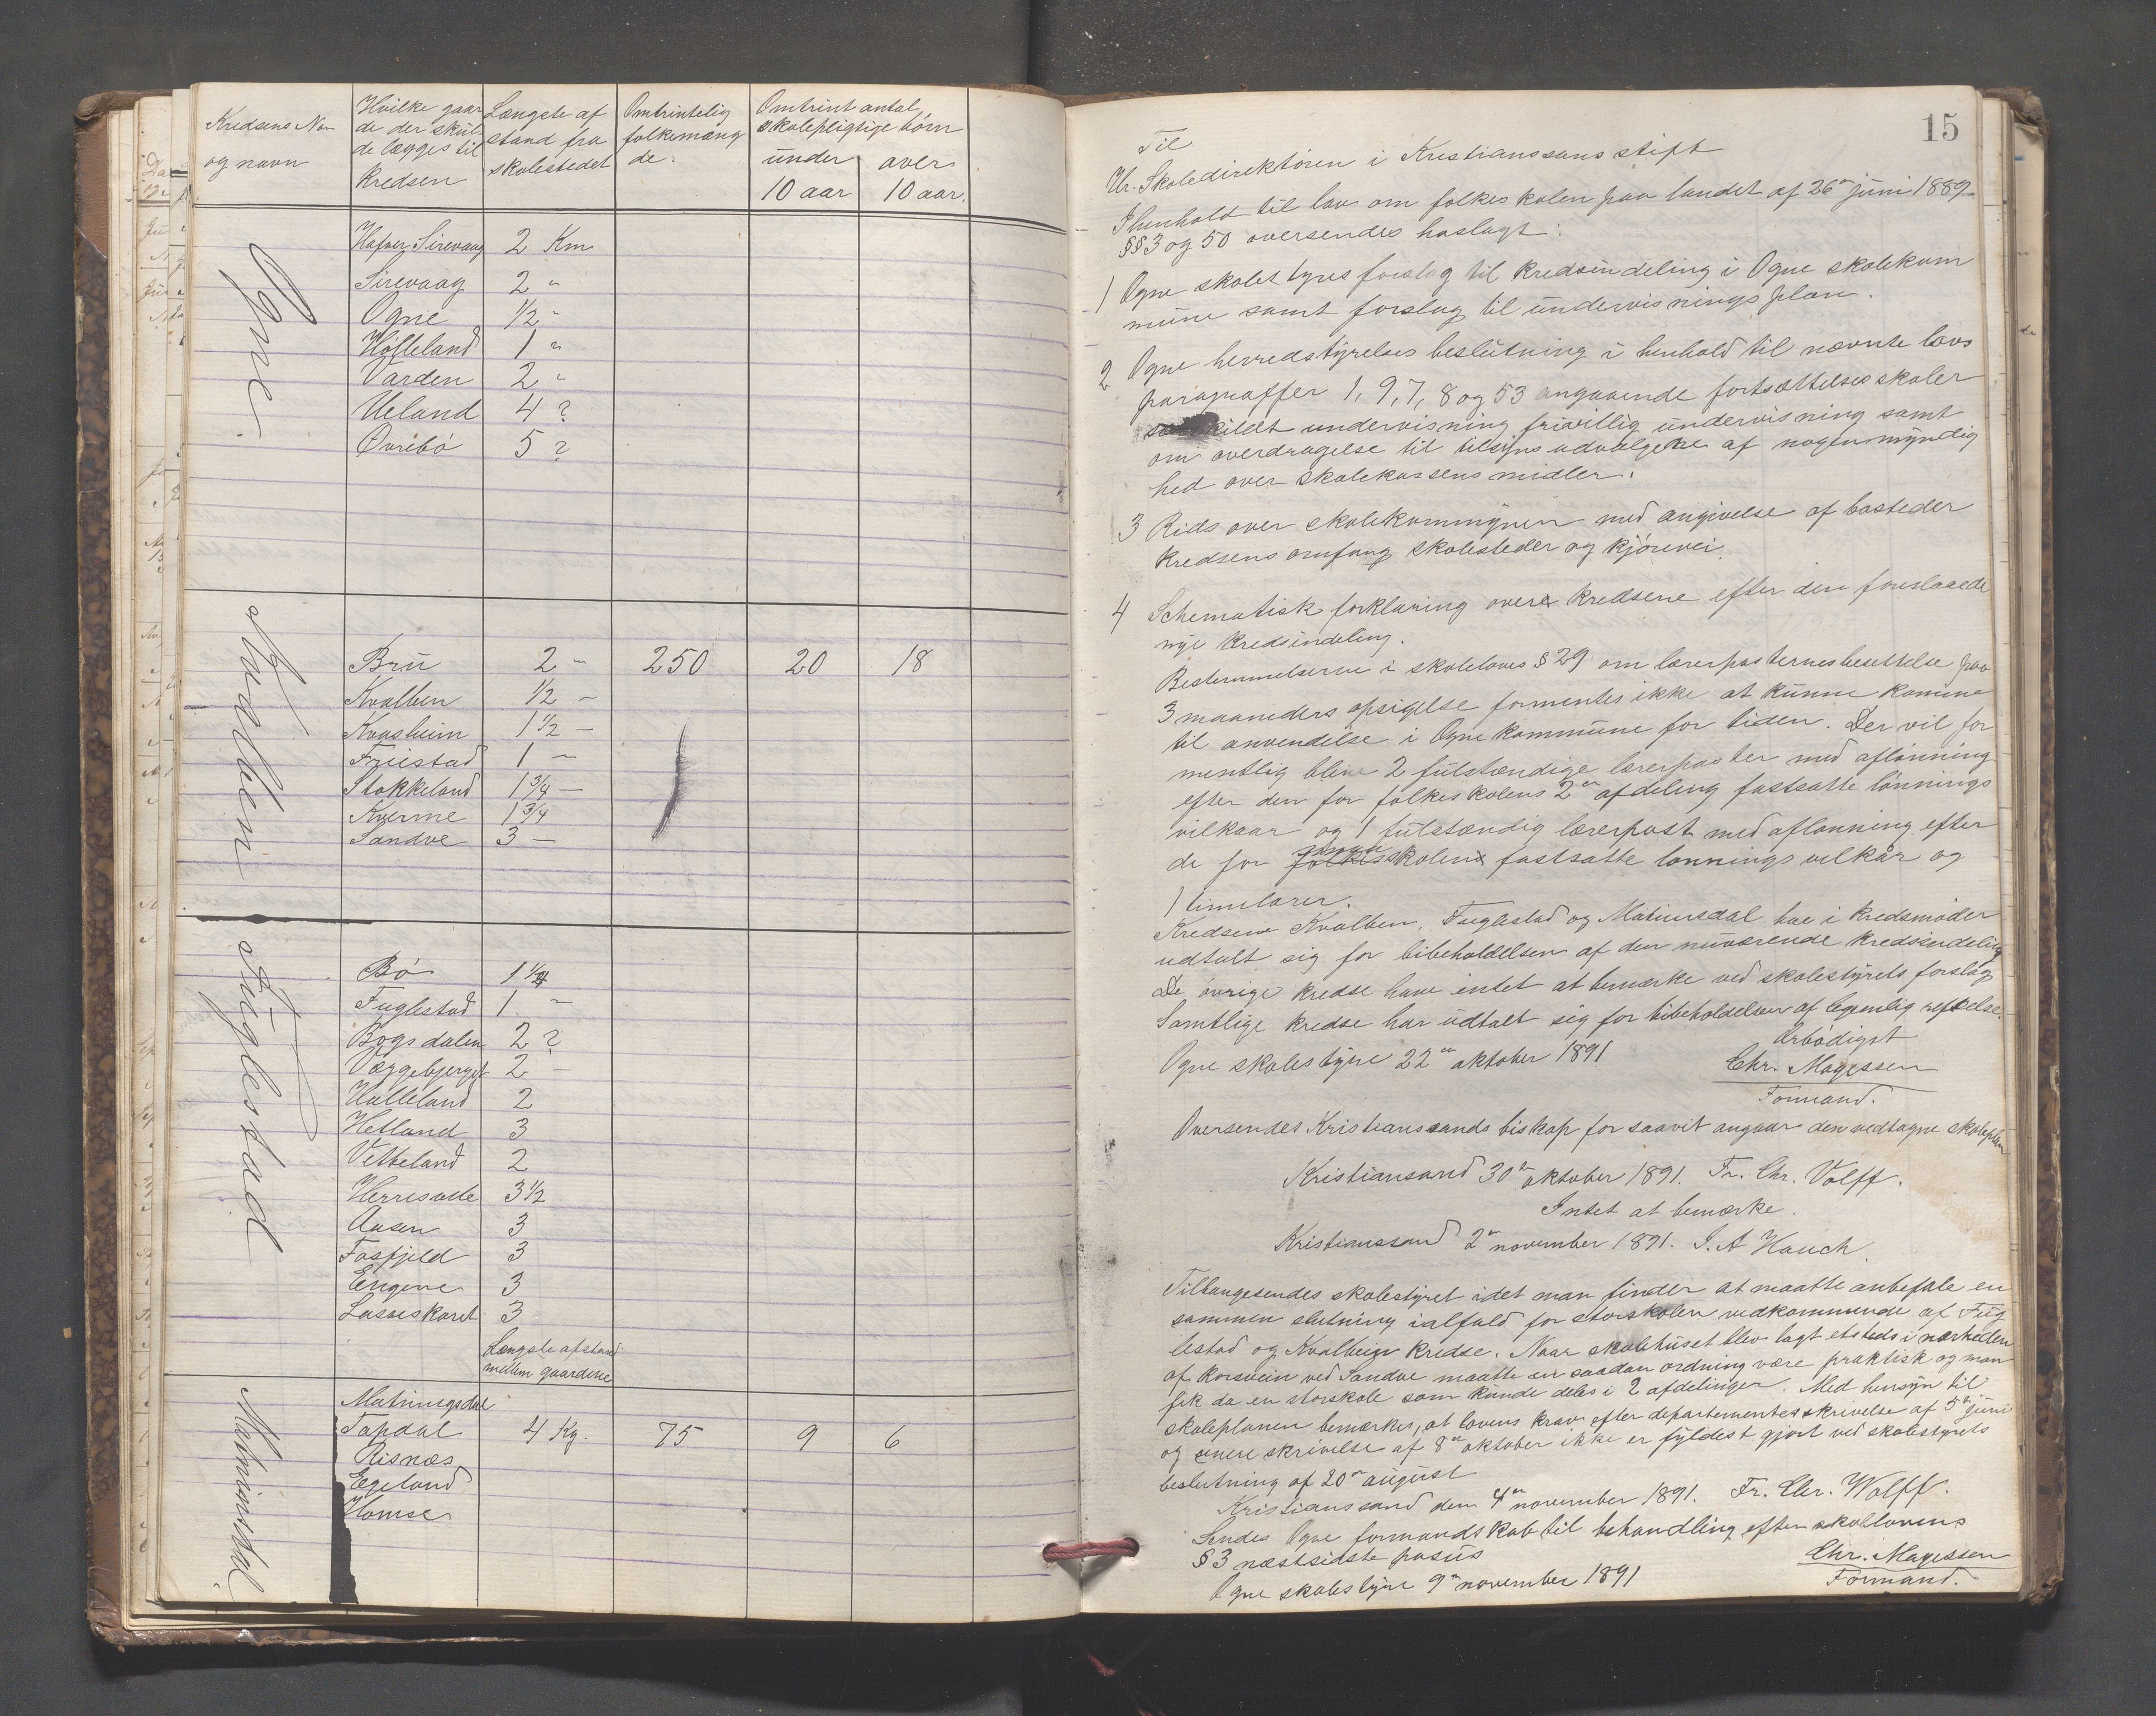 Kredsens No og navn | Hvilke gaarde der skulde lægges til kredsen | Længste afstand fra skolestedet | Omtrintelig folkemængde. | Omtrint antal skolepligtige børn under 10 aar | over 10 aar.
Ogne.
Hafver Sirevaag 2 Km
Sirevaag 2 "
Ogne 1/2 "
Hølleland 1 "
Varden 2 "
Ueland 4 ?
Øvrebø 5 ?
Kvalbein
Brü 2 " 250 20 18
Kvalben 1/2 -
Kvasheim 1 1/2 -
Friestad 1 -
Stokkeland 1 3/4 -
Kverme 1 3/4
Sandve 3 -
Füglestad
Bø 1 1/4
Fuglestad 1 "
Bogsdalen 2 ?
Væggebjerget 2 -
Hålleland 2
Hetland 3
Vetteland 2
Herresvele 3 1/2
Aasen 3
Fosfjeld 3
Engene 3
Lasseskaret 3
Længste afstand
mellem gaardene
Matningsdal
Tapdal 4 Kg. 75 9 6
Risnæs
Egeland
Homse
15
Til
Hr. Skoledirektøren i Kristianssans stift
I henhold til lov om folkeskolen paa landet af 26de juni 1889
§§ 3 og 50 oversendes hoslagt:
1 Ogne skolestyres forslag til kredsindeling i Ogne skolekom
müne samt forslag til undervisningsplan.
2 Ogne herredstyrelses beslutning i henhold til nævnte lovs
paragraffer 1, 9, 7, 8 og 53 angaaende fortsættelsesskoler
særskildt undervisning frivillig undervisning samt
om overdragelse til tilsynsudvalgene af nogen myndig
hed over skolekassens midler.
3 Rids over skolekommunen med angivelse af bosteder
kredsens omfang skolesteder og kjørevei.
4 Schematisk forklaring over kredsene efter den foreslaaede
nye kredsindeling.
Bestemmelserne i skoleloves § 29 om lærerposternes besettelse paa
3 maaneders opsigelse formentes ikke at kunne komme
til anvendelse i Ogne kommüne for tiden. Der vil for
mentlig blive 2 fulstændige lærerposter med aflønning
efter den for folkeskolens 2en afdeling fastsatte lønnings
vilkaar og 1 fulstændig lærerpost med aflønning efter
de for folkesskolen fastsatte lønningsvilkår og
1 timelærer.
Kredsene Kvalben, Fuglestad og Matningsdal har i kredsmøder
udtalt sig for bibeholdelsen af den nuværende kredsindeling
De øvrige kredse have intet at bemærke ved skolestyrets forslag
Samtlige kredse har udtalt sig for bibeholdelsen af legemlig reffelse.
Ærbødigst
Ogne skolestyre 22en oktober 1891
Chr. Magessen
Formand.
Oversendes Kristianssands biskop for saavit angaar den vedtagne skoleplan
Kristiansand 30te oktober 1891. Fr. Chr. Volff.
Intet at bemærke.
Kristianssand 2en november 1891. J. A Hauch.
Tilbagesendes skolestyret idet man finder at maatte anbefale en
sammenslutning ialfald for storskolen vedkommende af Füg
lestad og Kvalbein kredse. Naar skolehüset blev lagt etsteds i nærheden
af Korsvein ved Sandve maatte en saadan ordning være praktisk og man
fik da en storskole som kunde deles i 2 afdelinger. Med hensyn til
skoleplanen bemærkes, at lovens krav efter departementes skrivelse af 5te juni
og senere skrivelse af 8de oktober ikke er fyldest gjort ved skolestyrets
beslutning af 20de august
Kristianssand den 4de november 1891. Fr. Chr. Wolff.
Sendes Ogne formandskab til behandling efter skollovens
§ 3 næstsidste pasüs
Ogne skolestyre 9en november 1891
Chr. Magessen
Formand.